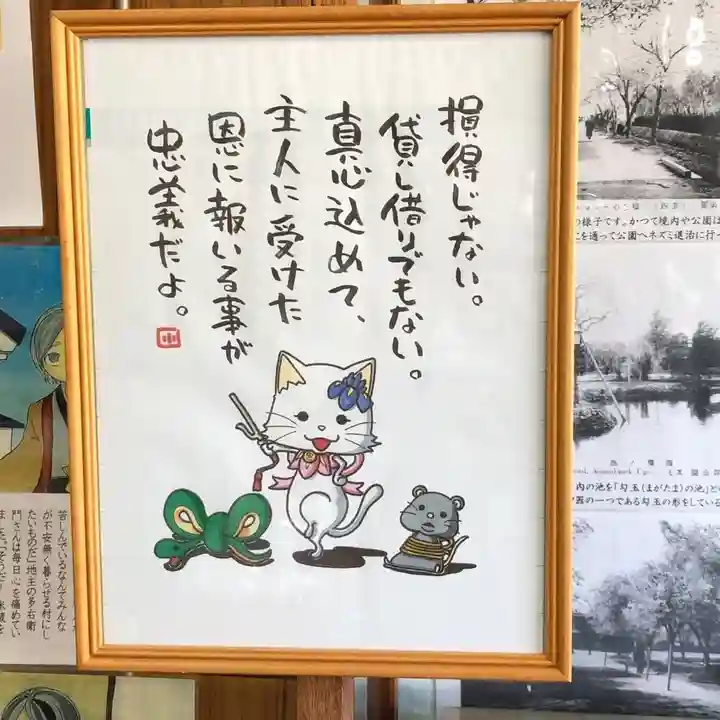 損得じゃない。
貸し借りでもない。
真心込めて、
主人に受けた
恩に報いる事が
忠義だよ。
の様子です。かつて境内や公園は
を通って公園へネズミ退治に行っ
内の池を「勾玉(まがたま)の池」と
器の一つである勾玉の形をしている
苦しんでいるなんてみんな
が不安無く暮らせる村にし
たいものだ」地主の多右衛
門さんは毎日心を痛めてい